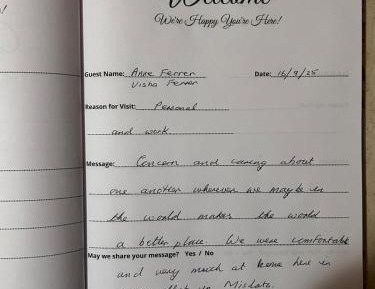 Welcome
We're Happy You're Here!
Guest Name: Anne Ferrer Date: 16/9/25
Visha Ferrer
Reason for Visit: Personal
and work
Message: Concern and caring about
one another wherever we maybe in
the world makes the world
a better place. We were comfortable
May we share your message? Yes / No
and very much at home here in